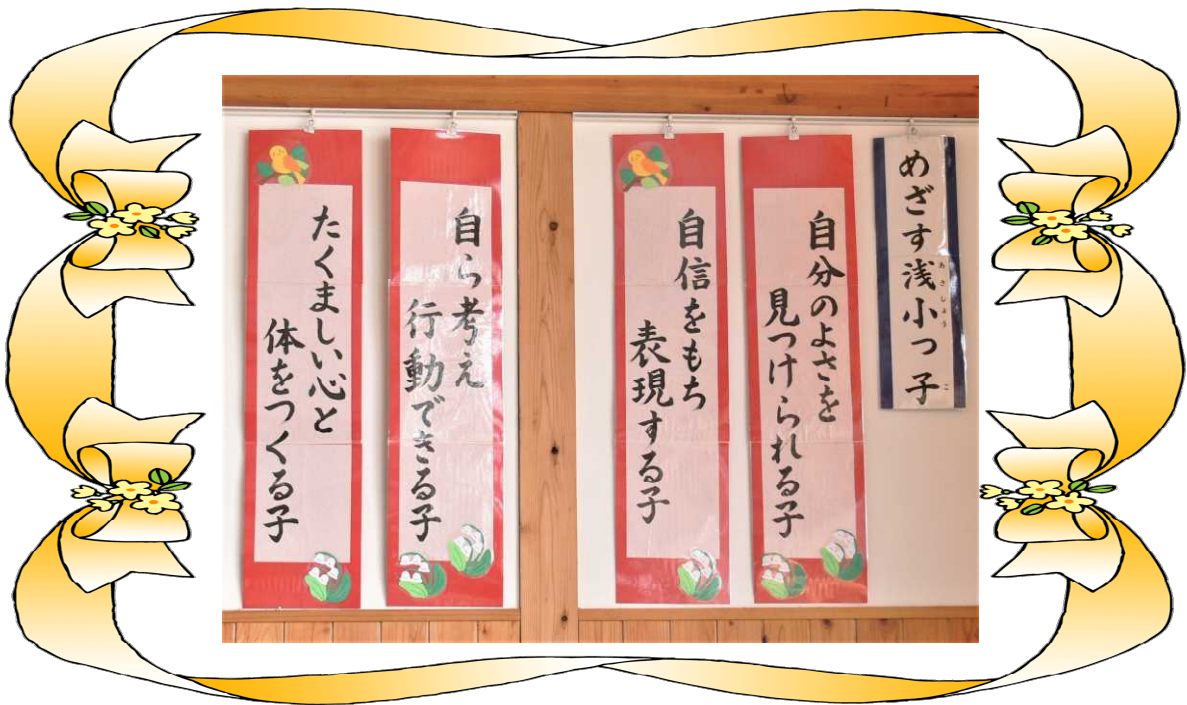 めざす浅小っ子
あさしょう
こ
自分のよさを
見つけられる子
自信をもち
表現する子
自ら考え
行動できる子
たくましい心と
体をつくる子